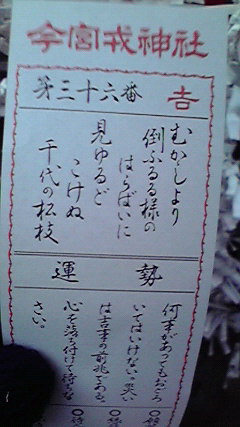 今宮戎神社
第三十六番 吉
むかしより
倒ふるる様の
はらばいに
見ゆるど
こけぬ
千代の松枝
運勢
何事があってもおどろ
いてはいけない。笑い
は吉事の前兆である。
心を落ち付けて待ちな
さい。